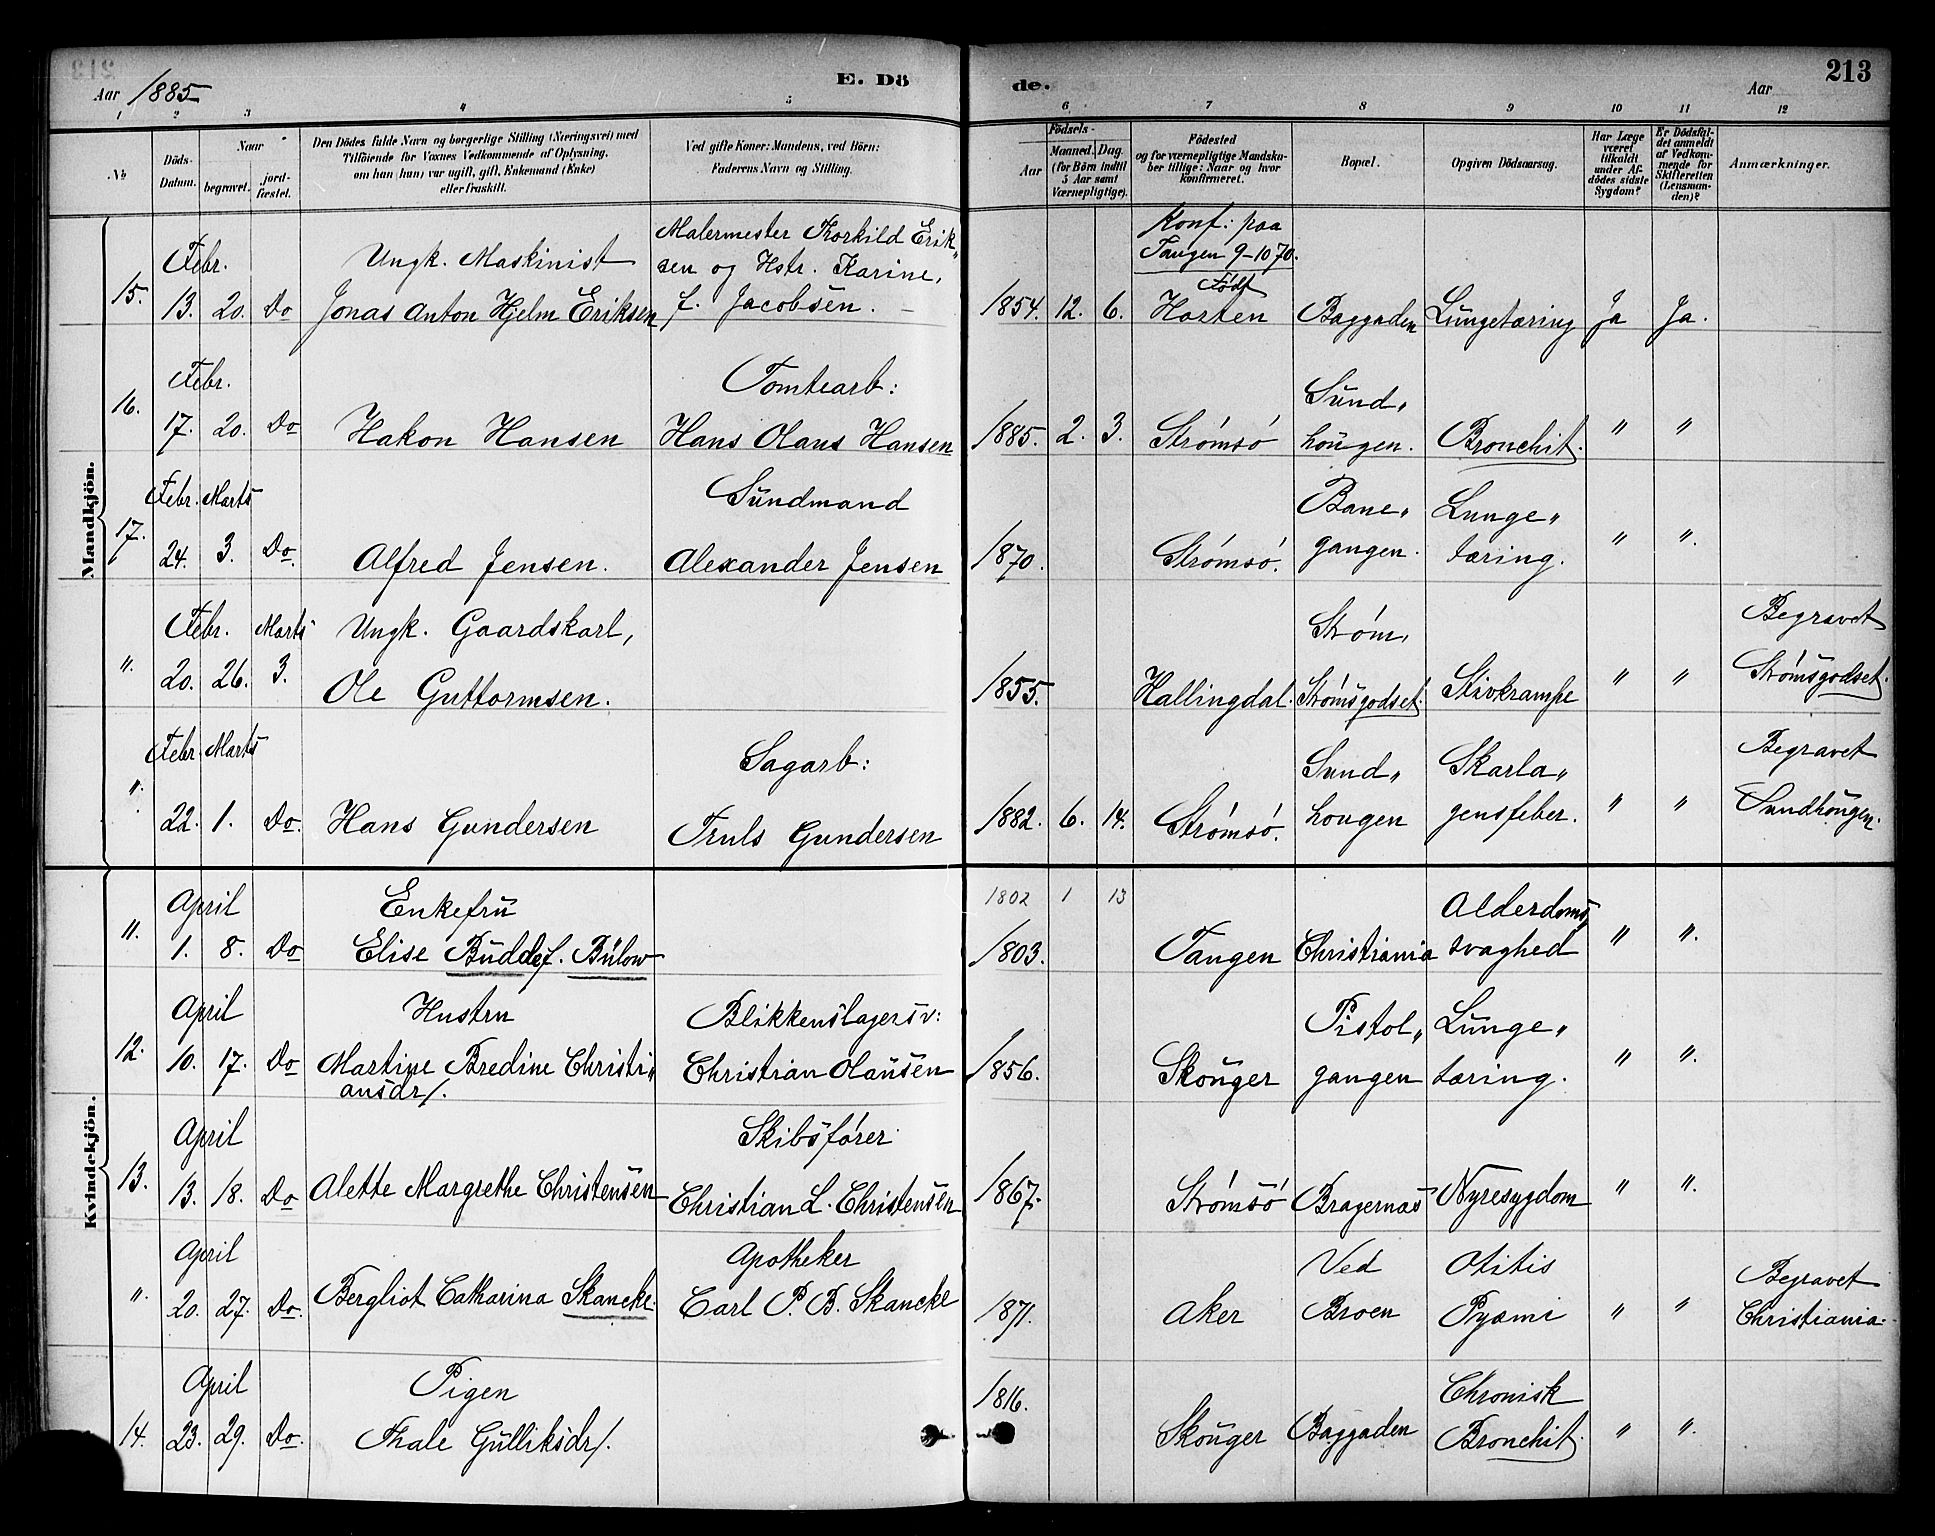 Aar 1885
E. Dö
de.
Aar
213
1 2 3 4 5 6 7 8 9 10 11 12
No
Döds-Datum.
Naar
begravet.
jord-fæstet.
Den Dödes fulde Navn og borgerlige Stilling (Næringsvei) med
Tilföiende for Voxnes Vedkommende af Oplysning,
om han (hun) var ugift, gift, Enkemand (Enke)
eller fraskilt.
Ved gifte Koner: Mandens, ved Börn:
Faderens Navn og Stilling.
Födsels-
Aar
Maaned. Dag.
(for Börn indtil
5 Aar samt
Værnepligtige).
Födested
og for værnepligtige Mandska-
ber tillige: Naar og hvor
konfirmeret.
Bopæl.
Opgiven Dödsaarsag.
Har Læge
været
tilkaldt
under Af-
dödes sidste
Sygdom?
Er Dödsfal-
det anmeldt
af Vedkom-
mende for
Skifteretten
(Lensman-
den)?
Anmærkninger.
Mandkjön.
15. Febr. 13. 20. Do
Ungk. Maskinist
Jonas Anton Hjelm Eriksen
Malermester Torkild Erik„
sen og Hstr. Karine,
f. Jacobsen. –
1854. 12. 6.
Konf: paa
Tangen 9-10 70.
Født
Horten
Baggaden Lungetæring Ja Ja.
16. Febr. 17. 20. Do
Hakon Hansen
Tomtearb:
Hans Olaus Hansen
1885. 2. 3. Strømsö
Sund„
hougen.
Bronchit. " "
17. Febr. Marts
24. 3. Do.
Alfred Jensen.
Sundmand
Alexander Jensen
1870. Strømsö.
Bane„
gangen.
Lunge„
tæring. " ".
". Febr. Marts
20. 26. 3.
Ungk. Gaardskarl,
Ole Guttormsen.
1855. Hallingdal.
Strøm,
Strømsgodset.
Stivkrampe " "
Begravet
Strømsgodset.
". Febr. Marts
22. 1. Do.
Hans Gundersen
Sagarb:
Truls Gundersen
1882. 6. 14. Strømsö.
Sund„
hougen
Skarla„
gensfeber. " "
Begravet
Sundhougen.
Kvindekjön.
". April
1. 8. Do
Enkefru
Elise Budde f. Bülow
1802 1 13
1803. Tangen Christiania
Alderdoms„
svaghed " ".
12. April
10. 17. Do
Hustru
Martine Bredine Christi„
ansdr/.
Blikkenslagersv:
Christian Olausen
1856. Skouger
Pistol„
gangen
Lunge„
tæring. " ".
13. April
13. 18. Do
Alette Margrethe Christensen
Skibsfører
Christian L. Christensen
1867. Strømsö Bragernæs Nyresygdom " ".
". April
20. 27. Do.
Bergliot Catharina Skancke.
Apotheker
Carl P. B. Skancke
1871. Aker
Ved
Broen
Otitis
Pyæmi " "
Begravet
Christiania.
14. April
23. 29. Do.
Pigen
Thale Gulliksdr/.
1816. Skouger Baggaden
Chronisk
Bronchit. " ".